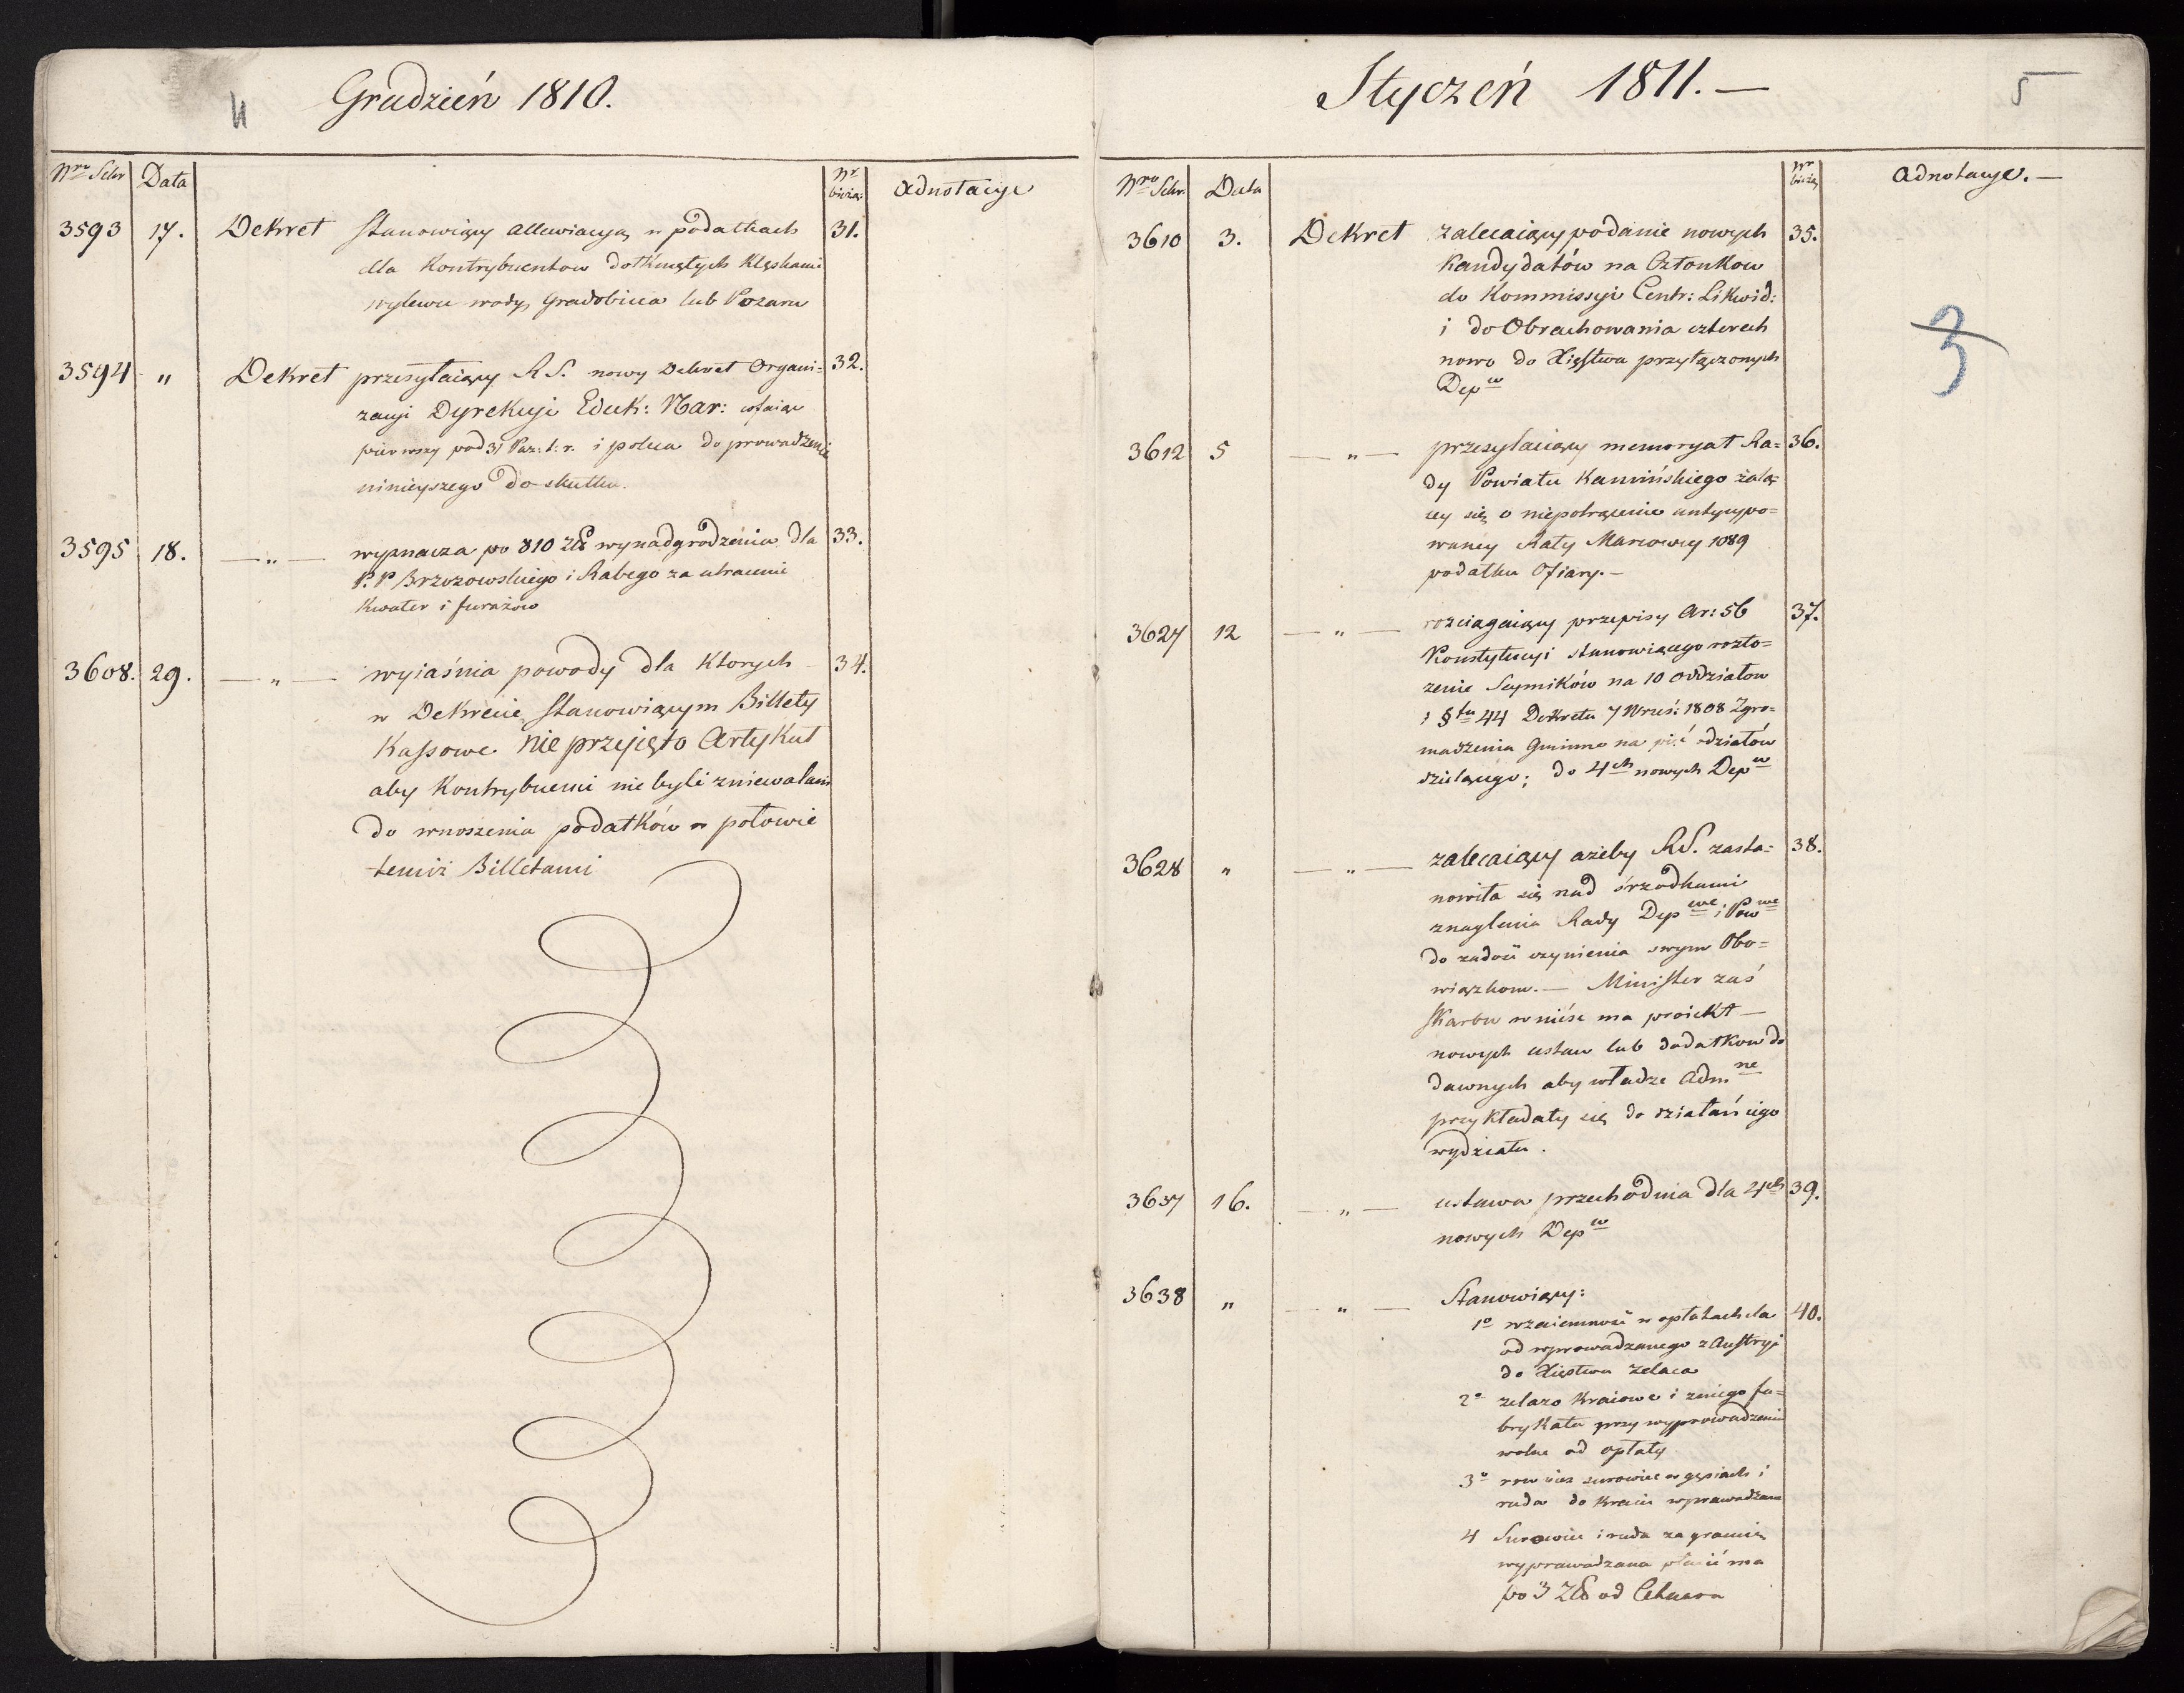 4
Grudzień 1810.
Nro Sekr Data Nr bieżąc Adnotacye
3593 17. Dekret stanowiący allewiacyą w podatkach 31.
dla Kontrybuentow dotkniętych klęskami
wylewu wody, Gradobicia lub Pożaru
3594 " Dekret przesyłaiący R.S. nowy Dekret Organi= 32.
zacyi Dyrekcyi Eduk: Nar: cofaiąc
pierwszy pod 31 Paz: t: r. i poleca do prowadzenie
ninieyszego do skutku.
3595 18. — " — wyznacza po 810 Zł wynadgrodzenia dla 33.
P.P Brzozowskiego i Rabego za utracenie
Kwater i furażow
3608. 29. — " — wyiaśnia powody dla ktorych 34.
w Dekrecie stanowiącym Billety
Kassowe nie przyjęto Artykuł
aby Kontrybuenci nie byli zniewalani
do wnoszenia podatków w połowie
temiż Billetami
Styczeń 1811. —
5
Nro Sekr. Data Nr bieżą Adnotacye. —
3610 3. Dekret zalecaiący podanie nowych 35.
Kandydatów na Członkow
do Kommissyi Centr: Likwid:
i do Obrachowania czterech
nowo do Xięstwa przyłączonych
Dep w
3
3612 5 — " — przesyłaiący memoryał Ra= 36.
dy Powiatu Kamińskiego żalą
cey się o niepotrącenie antycypo=
waney Raty Marcowey 1089
podatku Ofiary. —
3627 12 — " — rozciągaiący przepisy Ar: 56 37.
Konstytucyi stanowiącego rozło=
żenie Seymików na 10 oddziałow
i § fu 44 Dekretu 7 Wrześ: 1808 Zgro=
madzenia Gminne na pięć odziałów
dzielącego; do 4ch nowych Dep w
3628 " — " — zalecaiący ażeby R.S. zasta= 38.
nowiła się nad śrzodkami
znaglenia Rady Dep we i Pow we
do zadość uczynienia swym Obo=
wiązkom. — Minister zaś
Skarbu wnieść ma proiekt —
nowych ustaw lub dodatkow do
dawnych aby władze Adm ne
przykładały się do działań iego
wydziału.
3637 16. — " — ustawa przechodnia dla 4ch 39.
nowych Dep w
3638 " — " — Stanowiący:
1o wzaiemność w opłatach cła 40.
od wprowadzanego z Austryi
do Xięstwa żelaza
2o żelazo Kraiowe i zniego fa=
brykata przy wyprowadzeniu
wolne od opłaty
3o rownież surowiec w gęsiach i
ruda do Kraiu wprowadzana
4 Surowiec i ruda za granicę
wyprowadzana płacić ma
po 3 Zł od Cetnara